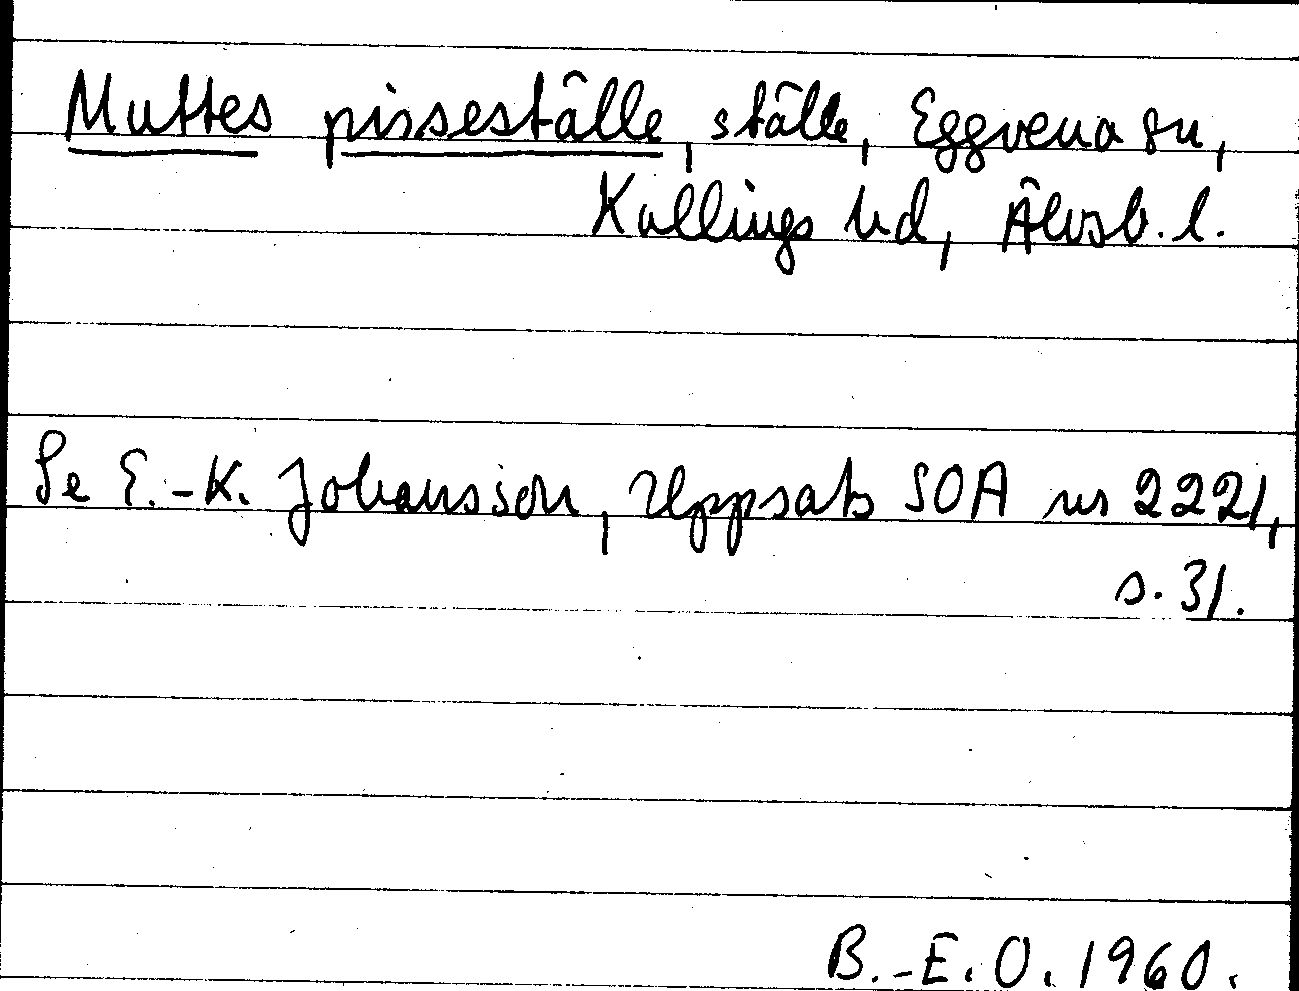 Muttes pisseställe, ställe, Eggvena sn,
Kullings hd, Älvsb. l.
Se E.-K. Johansson, Uppsats SOA nr 2221,
s. 31.
B.-E. O. 1960.